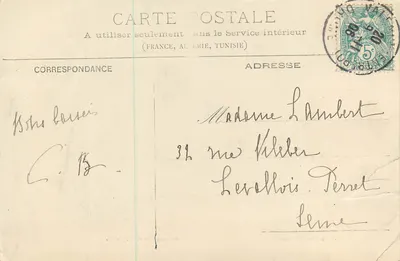 CARTE POSTALE
A utiliser seulement dans le Service intérieur
(FRANCE, ALGÉRIE, TUNISIE)
CORRESPONDANCE
ADRESSE
5
Bons baisers
C. B.
Madame Lambert
32 rue Kleber
Levallois-Perret
Seine